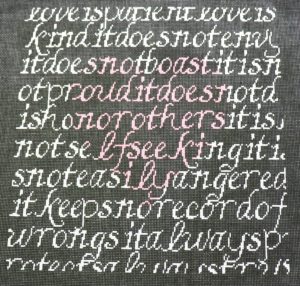 loveispatientloveis
kinditdoesnotenvy
itdoesnotboastitisn
otprouditdoesnotd
ishonorothersitis
notselfseekingitis
snoteasilyangered
itkeepsnorecordof
wrongsitalwaysp
rotectsalwaystrus